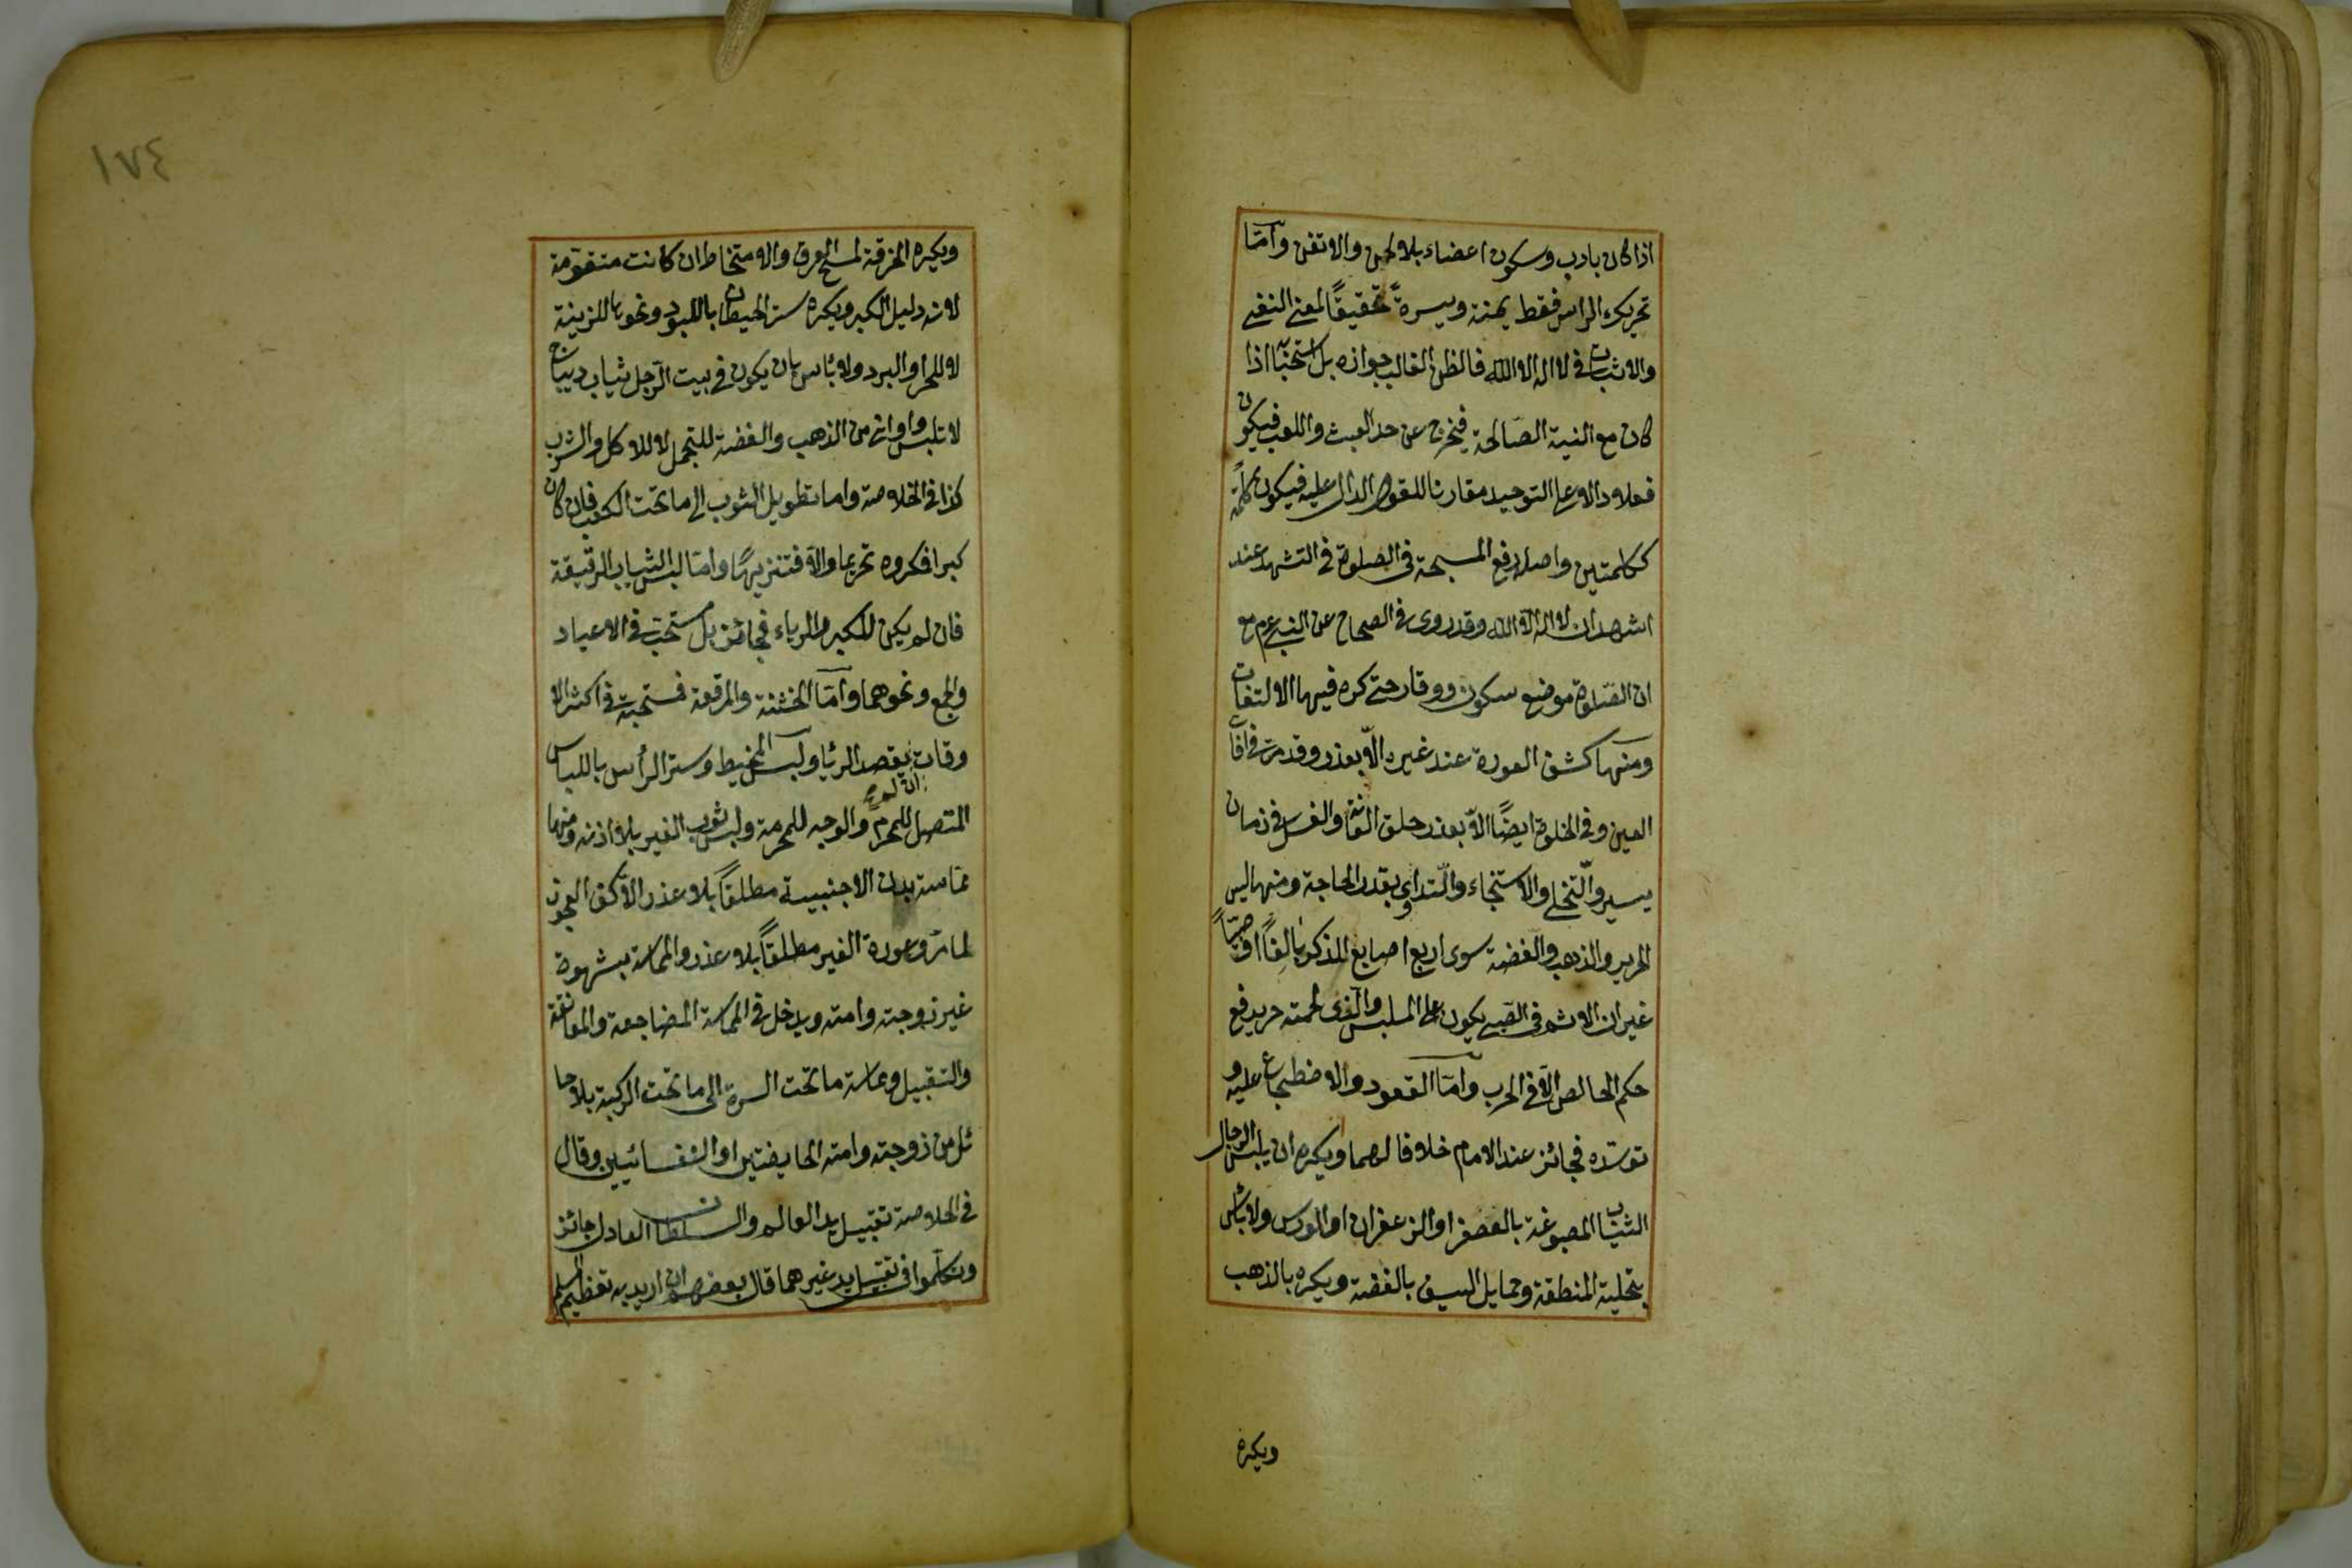 اذا كان بادب وسكون اعضاء بلا لحن والا تغن وامّا
تحريك الرأس فقط يمنة ويسرةً تحقيقًا لمعنى النفى
والاثبات فى لا اله الا الله فالظن الغالب جوازه بل استحبابه اذا
كان مع النية الصّالحة فيخرج عن حد العبث واللعب فيكون
فعلا دالا على التوحيد مقارنا للقول الدال عليه فيكون كلمةً
ككلمتين واصله رفع المسبحة فى الصلوة فى التشهد عند
اشهد ان لا اله الا الله وقد روى فى الصحاح عن النبى عم مع
ان الصّلوة موضع سكون ووقار حتى كره فيها الالتفات
ومنها كشف العورة عند غيره الّا بعذر وقد مرت فى افات
العين وفى الخلوة ايضًا الّا بعذر حلق العانة والغسل فى زمان
يسير والتّخلى والاستنجاء والتّداوى بقدر الحاجة ومنها لبس
الحرير والذهب والفضة سوى اربع اصابع للذكر بالغًا او صبيّاً
غير ان الاثم فى الصّبى يكون على الملبس والذى لحمته حرير فع
حكم الخالص الّا فى الحرب وامّا القعود والاضطجاع عليه و
توسّده فجائز عند الامام خلافا لهما ويكره ان يلبس الرجال
الثياب المصبوغة بالعصفر او الزعفران او الورس ولا بأس
بتحلية المنطقة وحمايل السيف بالفضة ويكره بالذهب
ويكره
١٧٤
ويكره الخرقة لمسح العرق والامتخاط ان كانت متقومة
لانه دليل الكبر ويكره ستر الحيطان باللبود ونحوها للزينة
لا للحر والبرد ولا بأس بان يكون فى بيت الرّجل ثياب ديباج
لا تلبس واوانى من الذهب والفضة للتجمل لا للاكل والشرب
كذا فى الخلاصة واما تطويل الثوب الى ما تحت الكعب فان كان
كبرا فمكروه تحريما والّا فتنزيهًا وامّا لبس الثياب الرقيقة
فان لم يكن للكبر والرياء فجائز بل مستحب فى الاعياد
والجمع ونحوهما وامّا الخشنة والمرقعة فمستحبة فى اكثر الا
وقات بقصد الريا ولبس المخيط وستر الرأس باللباس
ان لم
المتصل للمحرم والوجه للمحرمة ولبس ثوب الغير بلا اذنه ومنها
مماسة بدن الاجنبية مطلقاً بلا عذر الّا كف العجوز
لما مرّ وعورة الغير مطلقاً بلا عذر والمماسة بشهوة
غير زوجته وامته ويدخل فى المماسة المضاجعة والمعانقة
والتقبيل ومماسة ما تحت السرة الى ما تحت الركبة بلا حا
ئل من زوجته وامته الحايضتين او النفسائيين وقال
فى الخلاصة تقبيل يد العالم والسلطان العادل جائز
وتكلّموا فى تقبيل يد غيرهما قال بعضهم ان اريد به تعظيم المسلم